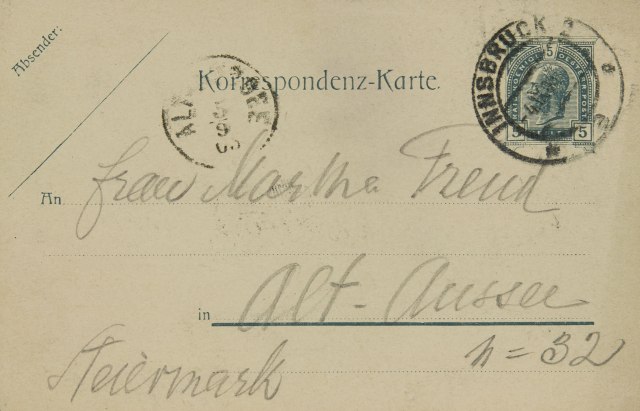 Absender:
Korrespondenz-Karte.
INNSBRUCK 2
5
5 5
An Frau Martha Freud
in Alt-Aussee
Steiermark n = 32